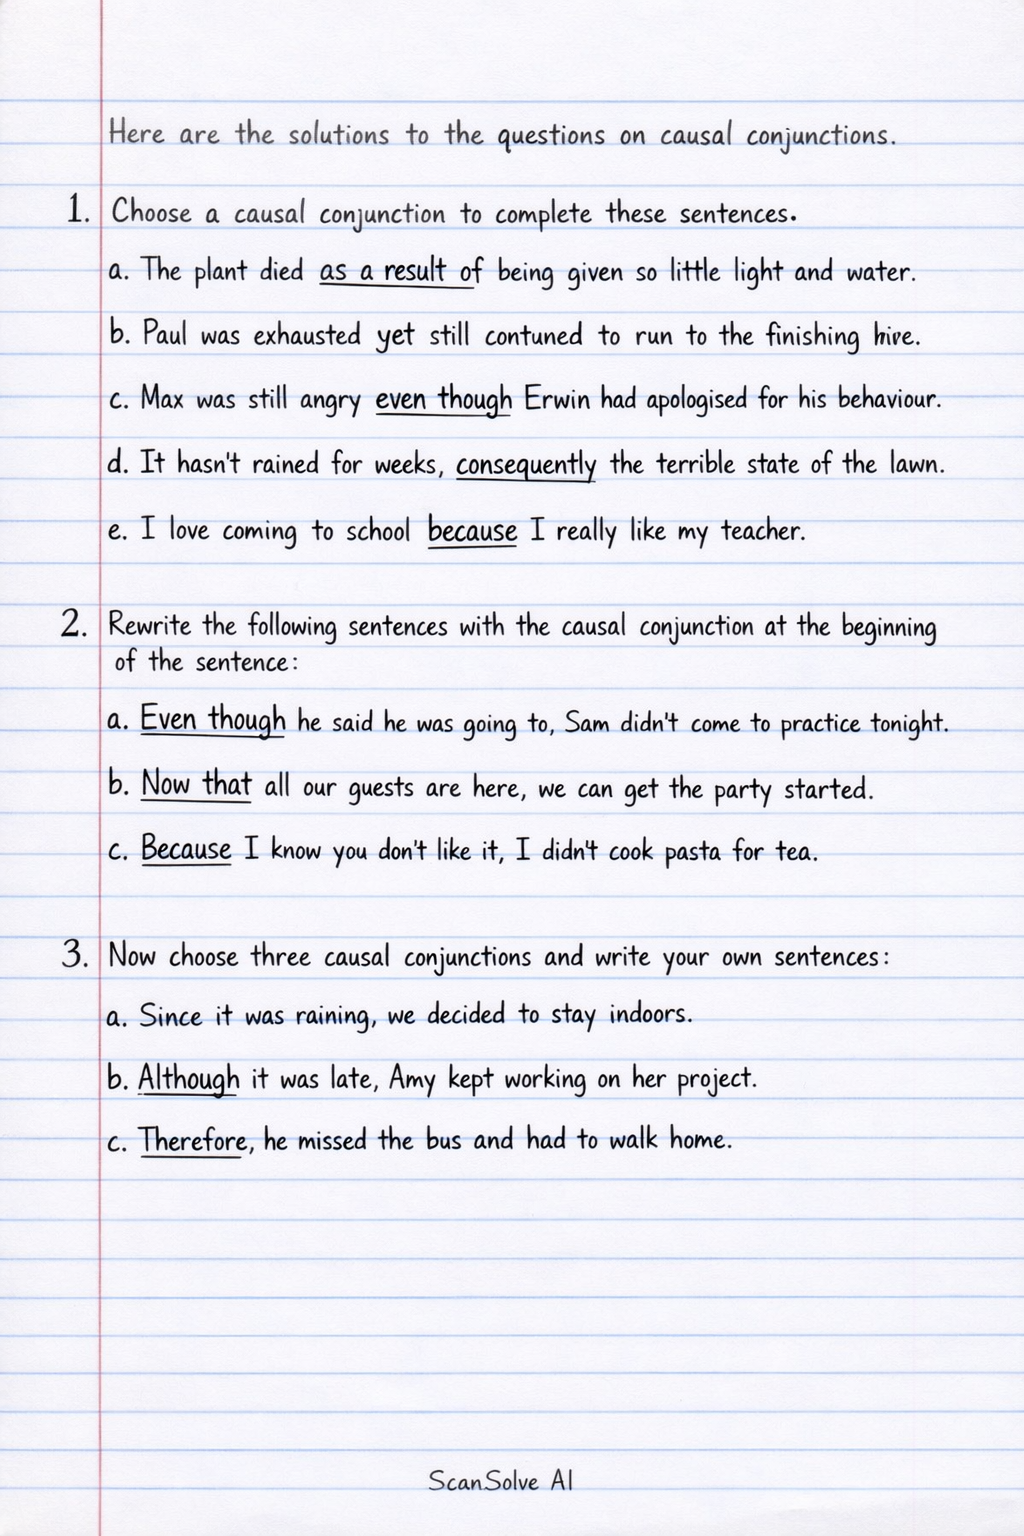 Here are the solutions to the questions on causal conjunctions.
1. Choose a causal conjunction to complete these sentences.
a. The plant died as a result of being given so little light and water.
b. Paul was exhausted yet still contuned to run to the finishing hive.
c. Max was still angry even though Erwin had apologised for his behaviour.
d. It hasn't rained for weeks, consequently the terrible state of the lawn.
e. I love coming to school because I really like my teacher.
2. Rewrite the following sentences with the causal conjunction at the beginning
of the sentence:
a. Even though he said he was going to, Sam didn't come to practice tonight.
b. Now that all our guests are here, we can get the party started.
c. Because I know you don't like it, I didn't cook pasta for tea.
3. Now choose three causal conjunctions and write your own sentences:
a. Since it was raining, we decided to stay indoors.
b. Although it was late, Amy kept working on her project.
c. Therefore, he missed the bus and had to walk home.
ScanSolve AI